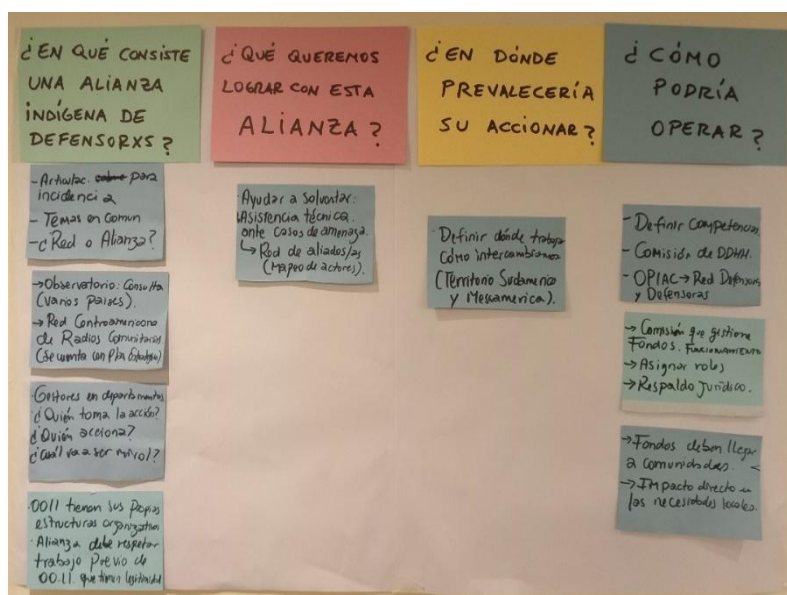 ¿EN QUÉ CONSISTE
UNA ALIANZA
INDÍGENA DE
DEFENSORXS?
- Articulac. para
incidencia
- Temas en Comun
- ¿Red o Alianza?
→ Observatorio: Consulta
(varios paises).
→ Red Centroamericana
de Radios Comunitarias
(Se cuenta con Plan Estratégico)
Gestores en departamentos
¿Quién toma la acción?
¿Quién acciona?
¿Cuál va a ser mi rol?
OOII tienen sus Propias
estructuras organizativas
Alianza debe respetar
trabajo Previo de
OO.II. que tienen legitimidad
¿QUÉ QUEREMOS
LOGRAR CON ESTA
ALIANZA?
Ayudar a Solventar:
Asistencia técnica
ante Casos de amenaza.
↳ Red de aliados/as
(Mapeo de actores).
¿EN DÓNDE
PREVALECERÍA
SU ACCIONAR?
Definir dónde trabajar
Cómo intercambiamos
(Territorio Sudamerica
y Mesoamerica).
¿CÓMO
PODRÍA
OPERAR?
- Definir Competencias.
- Comisión de DDHH.
- OPIAC → Red Defensores
y Defensoras
→ Comisión que gestione
Fondos. FUNCIONAMIENTO
→ Asignar roles
→ Respaldo Jurídico.
→ Fondos deben llegar
a comunidades.
→ Impacto directo en
las necesidades locales.